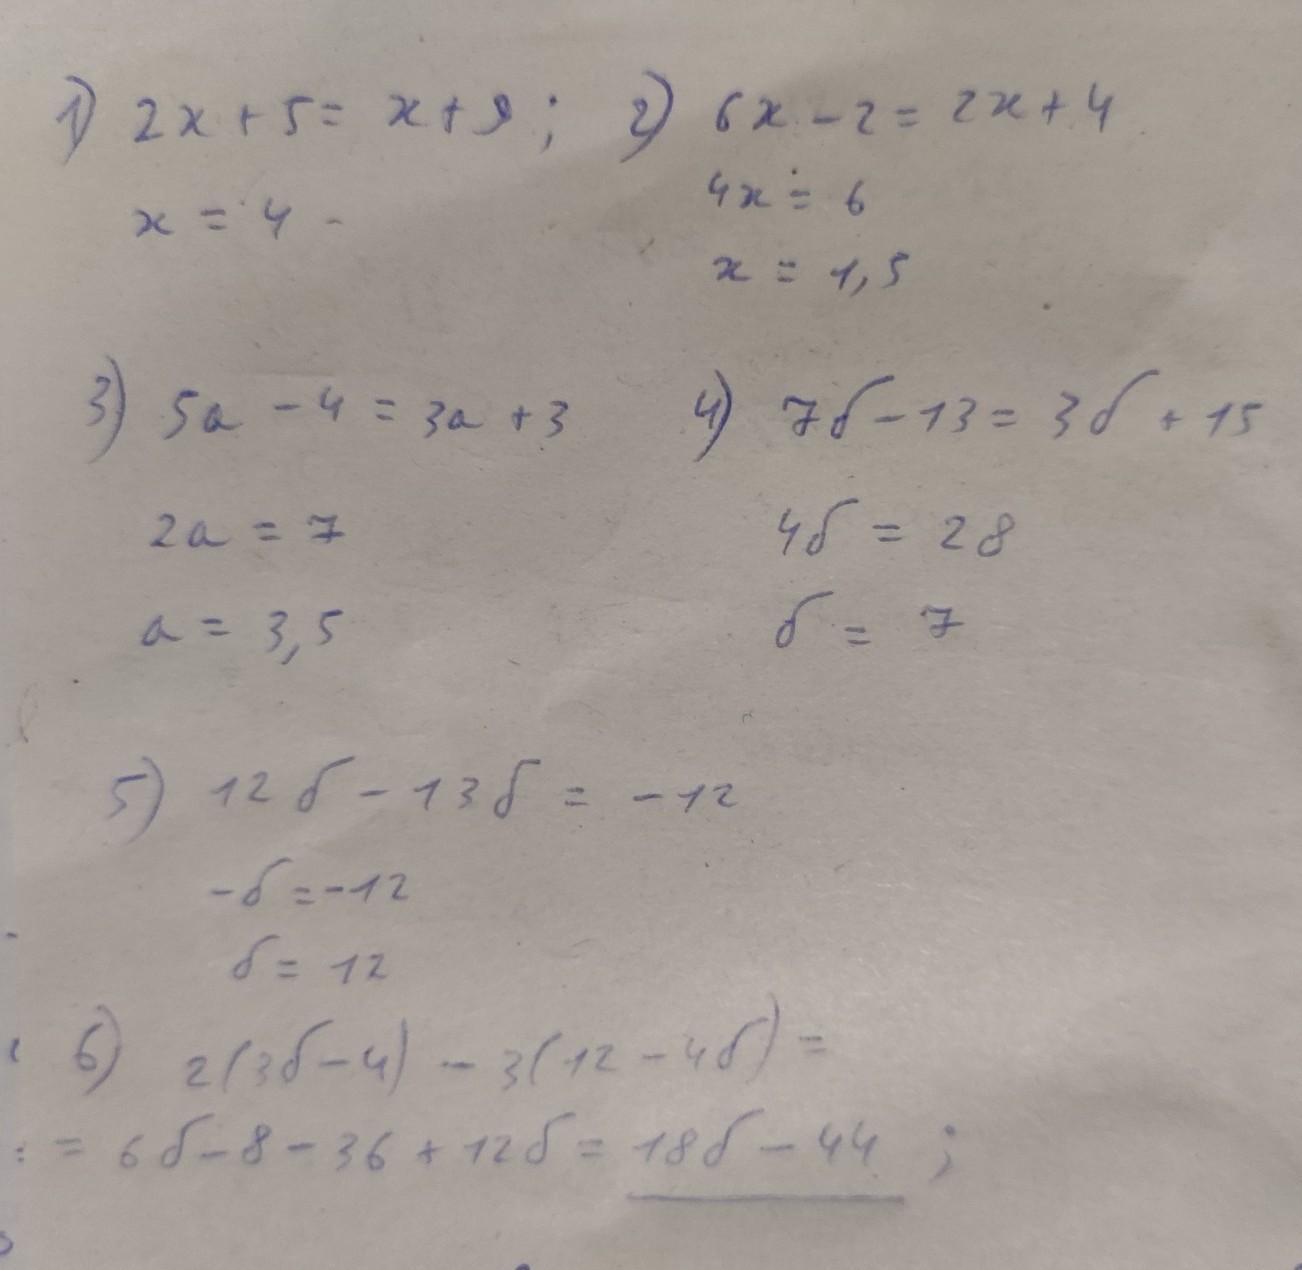 1) 2x + 5 = x + 9 ; 2) 6x - 2 = 2x + 4
x = 4
4x = 6
x = 1,5
3) 5a - 4 = 3a + 3
2a = 7
a = 3,5
4) 7б - 13 = 3б + 15
4б = 28
б = 7
5) 12б - 13б = -12
-б = -12
б = 12
6) 2(3б - 4) - 3(12 - 4б) =
= 6б - 8 - 36 + 12б = 18б - 44 ;